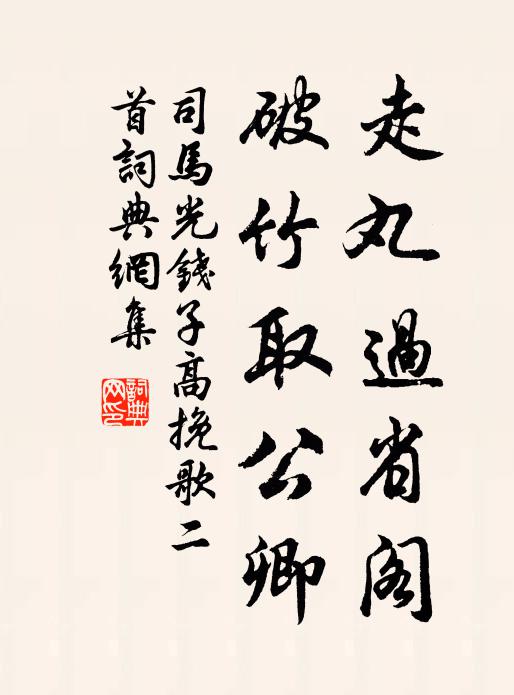 走丸過省閣
破竹取公卿
司馬光錢子高挽歌二
首詞典網集
詞典網印